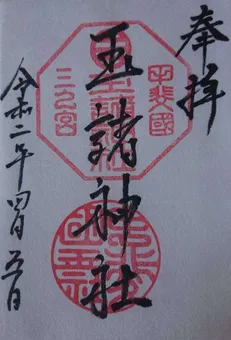 奉拝
甲斐國
三之宮
玉諸神社
令和二年四月五日